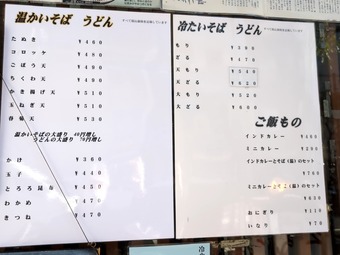 温かいそば うどん
たぬき ¥460
コロッケ ¥490
ごぼう天 ¥490
ちくわ天 ¥490
かき揚げ天 ¥510
玉ねぎ天 ¥510
春菊天 ¥530
温かいそばの大盛り
うどんの大盛り
かけ ¥360
玉子 ¥440
とろろ昆布 ¥450
わかめ ¥470
きつね ¥470
冷たいそば うどん
もり
ざる ¥470
天もり ¥540
天ざる ¥620
大もり ¥520
大ざる ¥600
ご飯もの
インドカレー ¥460
ミニカレー
インドカレーとそば(温)のセット
¥760
ミニカレーとそば(温)のセット
¥630
おにぎり ¥110
いなり ¥70